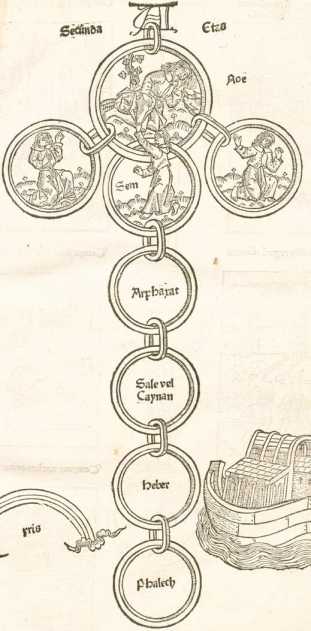 Secunda Etas
Noe
Sem
Arphaxat
Sale vel
Caynan
Heber
Yris
Phalech